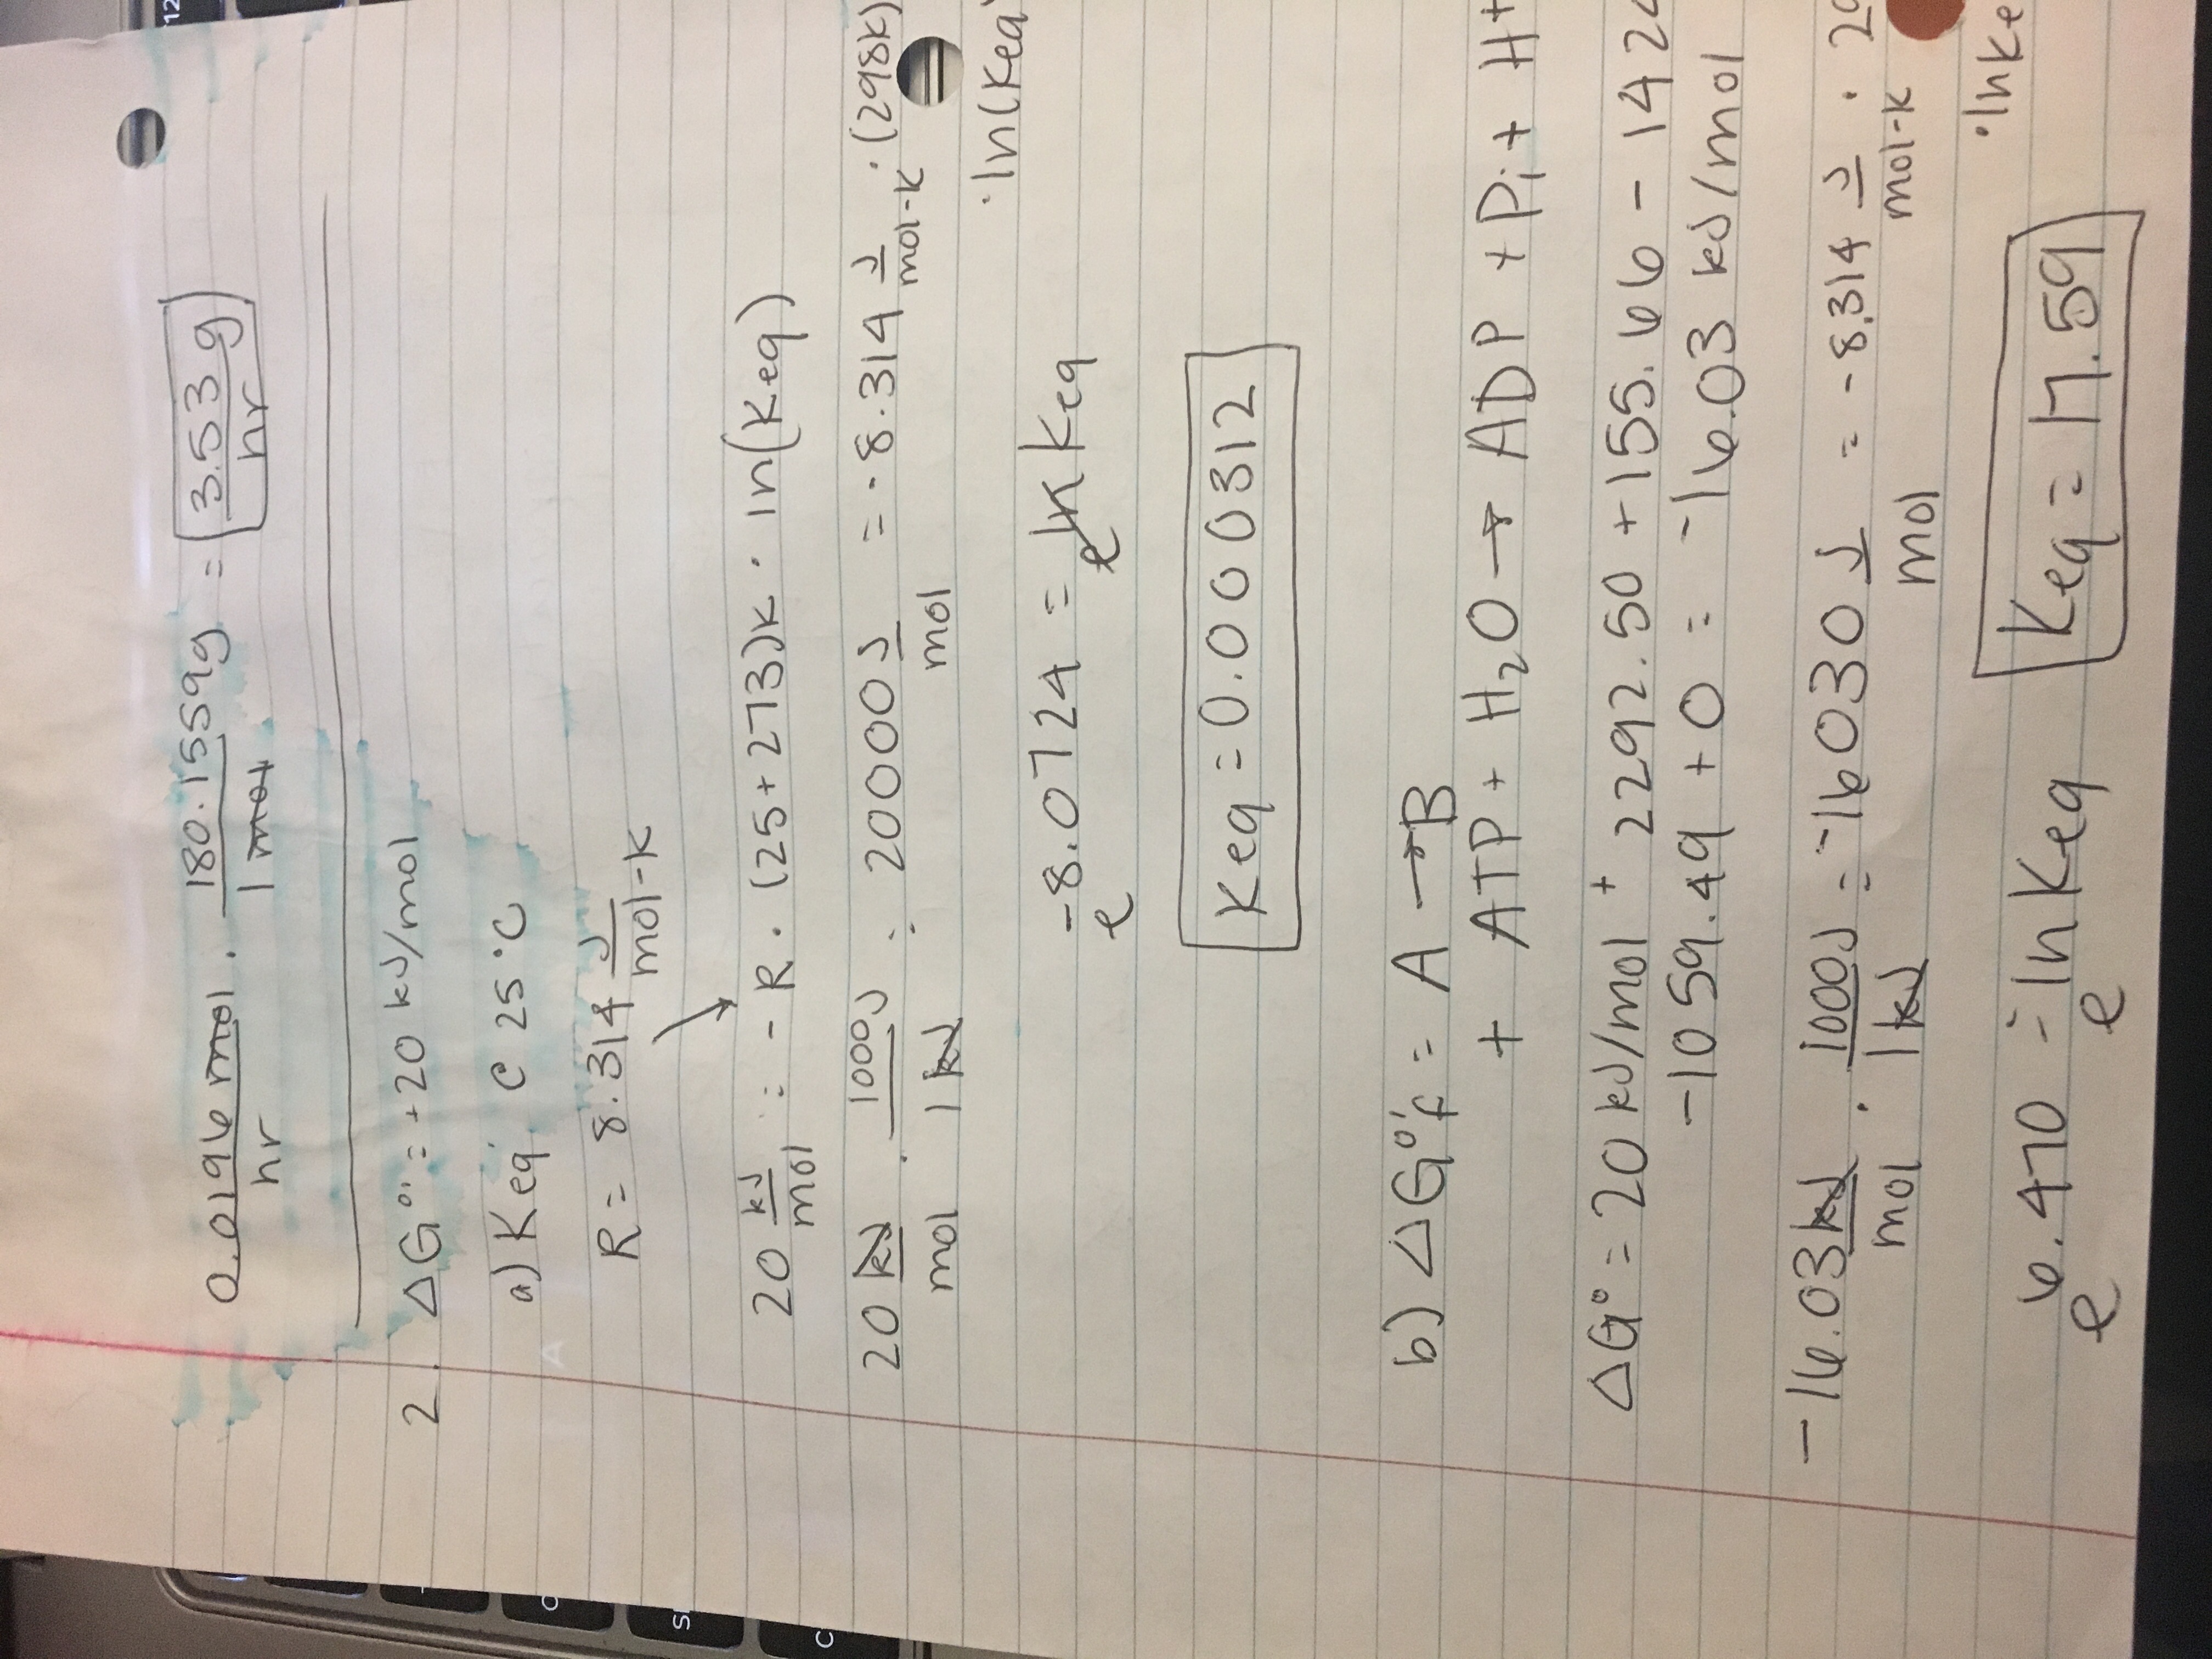 0.0196 mol/hr · 180.1559g/1 mol = 3.53 g/hr
2. ΔG°' = +20 kJ/mol
a) Keq' @ 25°C
R = 8.314 J/mol-K
20 kJ/mol = -R · (25+273)K · ln(Keq)
20 kJ/mol · 1000J/1 kJ = 20000 J/mol = -8.314 J/mol-K · (298K)
· ln(Keq
e -8.0724 = e ln Keq
Keq = 0.000312
b) ΔG°'f = A → B
+ ATP + H2O → ADP + Pi + H+
ΔG° = 20 kJ/mol + 2292.50 + 155.66 - 142
-1059.49 + 0 = -16.03 kJ/mol
-16.03 kJ/mol · 1000J/1kJ = -16030 J/mol = -8.314 J/mol-K · 29
· ln Ke
e 6.470 = e ln Keq
Keq = 17.59